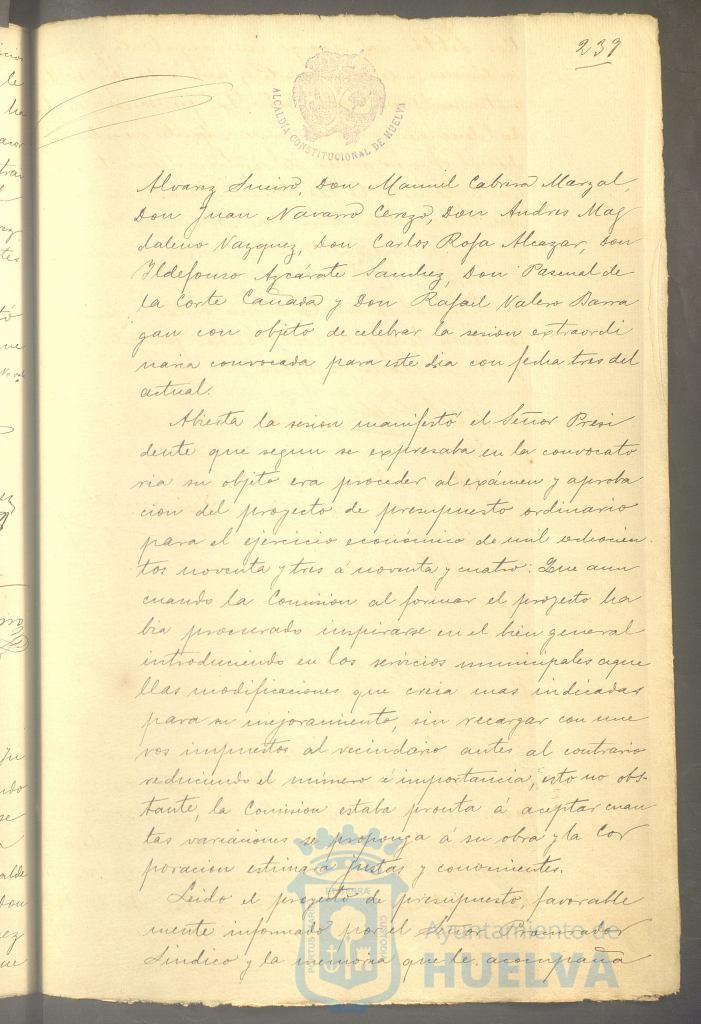 239
ALCALDÍA CONSTITUCIONAL DE HUELVA
Alvarez Sueiro, Don Manuel Cabrera Marzal,
Don Juan Navarro Cerezo, Don Andres Mag
daleno Vazquez, Don Carlos Rofa Alcazar, Don
Ildefonso Azcárate Sanchez, Don Pascual de
la Corte Cañada y Don Rafael Valero Barra
gan con objeto de celebrar la sesion extraordi
naria convocada para este dia con fecha tres del
actual.
Abierta la sesion manifestó el Señor Presi
dente que segun se expresaba en la convocato
ria su objeto era proceder al exámen y aproba
cion del proyecto de presupuesto ordinario
para el ejercicio económico de mil ochocien
tos noventa y tres á noventa y cuatro: Que aun
cuando la Comision al formar el proyecto ha
bia procurado inspirarse en el bien general
introduciendo en los servicios municipales aque
llas modificaciones que creia mas indicadas
para su mejoramiento, sin recargar con nue
vos impuestos al vecindario antes al contrario
reduciendo el número é importancia, esto no obs-
tante, la Comision estaba pronta á aceptar cuan
tas variaciones se proponga á su obra y la Cor
poracion estimara justas y convenientes.
Leido el proyecto de presupuesto, favorable
mente informado por el Señor Procurador
Sindico y la memoria que le acompaña
PORTUS MARIS ET TERRÆ CUSTODIA
Ayuntamiento de
HUELVA